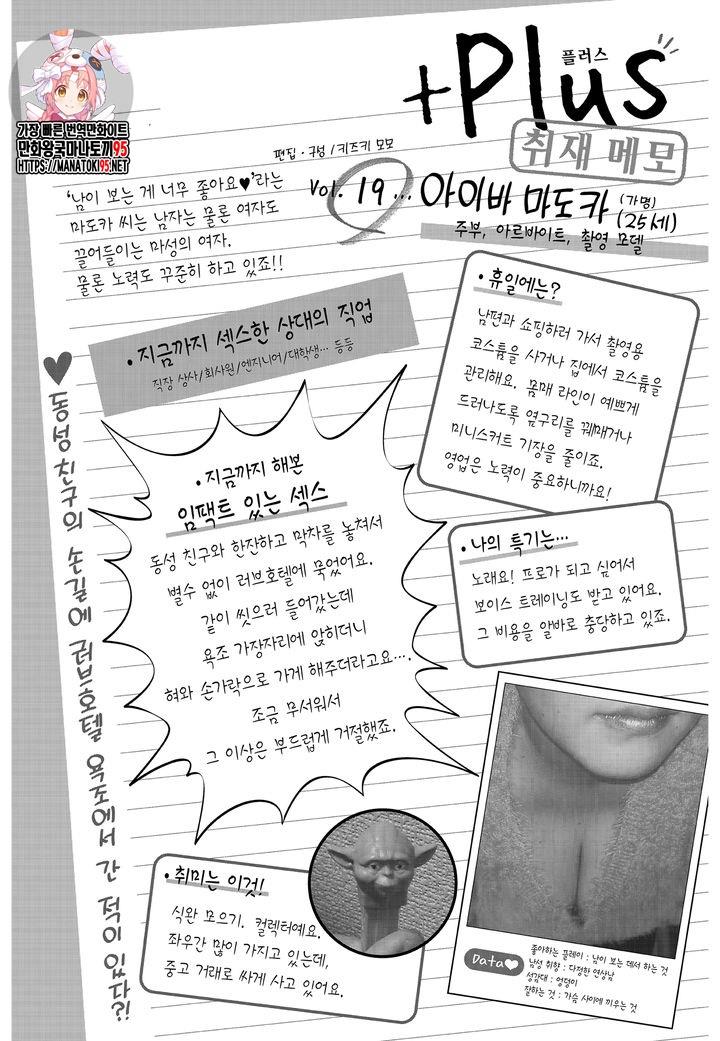 +Plus
플러스
취재 메모
가장 빠른 번역만화이트
만화왕국마나토끼95
HTTPS://MANATOKI95.NET
편집·구성 / 키즈키 모모
Vol. 19... 아이바 마도카 (가명)
(25세)
주부, 아르바이트, 촬영 모델
'남이 보는 게 너무 좋아요♥'라는
마도카 씨는 남자는 물론 여자도
끌어들이는 마성의 여자.
물론 노력도 꾸준히 하고 있죠!!
• 지금까지 섹스한 상대의 직업
직장 상사/회사원/엔지니어/대학생... 등등
• 휴일에는?
남편과 쇼핑하러 가서 촬영용
코스튬을 사거나 집에서 코스튬을
관리해요. 몸매 라인이 예쁘게
드러나도록 옆구리를 꿰매거나
미니스커트 기장을 줄이죠.
영업은 노력이 중요하니까요!
♥동성 친구의 손길에 러브호텔 욕조에서 간 적이 있다?!
• 지금까지 해본
임팩트 있는 섹스
동성 친구와 한잔하고 막차를 놓쳐서
별수 없이 러브호텔에 묵었어요.
같이 씻으러 들어갔는데
욕조 가장자리에 앉히더니
혀와 손가락으로 가게 해주더라고요....
조금 무서워서
그 이상은 부드럽게 거절했죠.
• 나의 특기는...
노래요! 프로가 되고 싶어서
보이스 트레이닝도 받고 있어요.
그 비용을 알바로 충당하고 있죠.
• 취미는 이것!
식완 모으기. 컬렉터예요.
좌우간 많이 가지고 있는데,
중고 거래로 싸게 사고 있어요.
Data♥
좋아하는 플레이 : 남이 보는 데서 하는 것
남성 취향 : 다정한 연상남
성감대 : 엉덩이
잘하는 것 : 가슴 사이에 끼우는 것